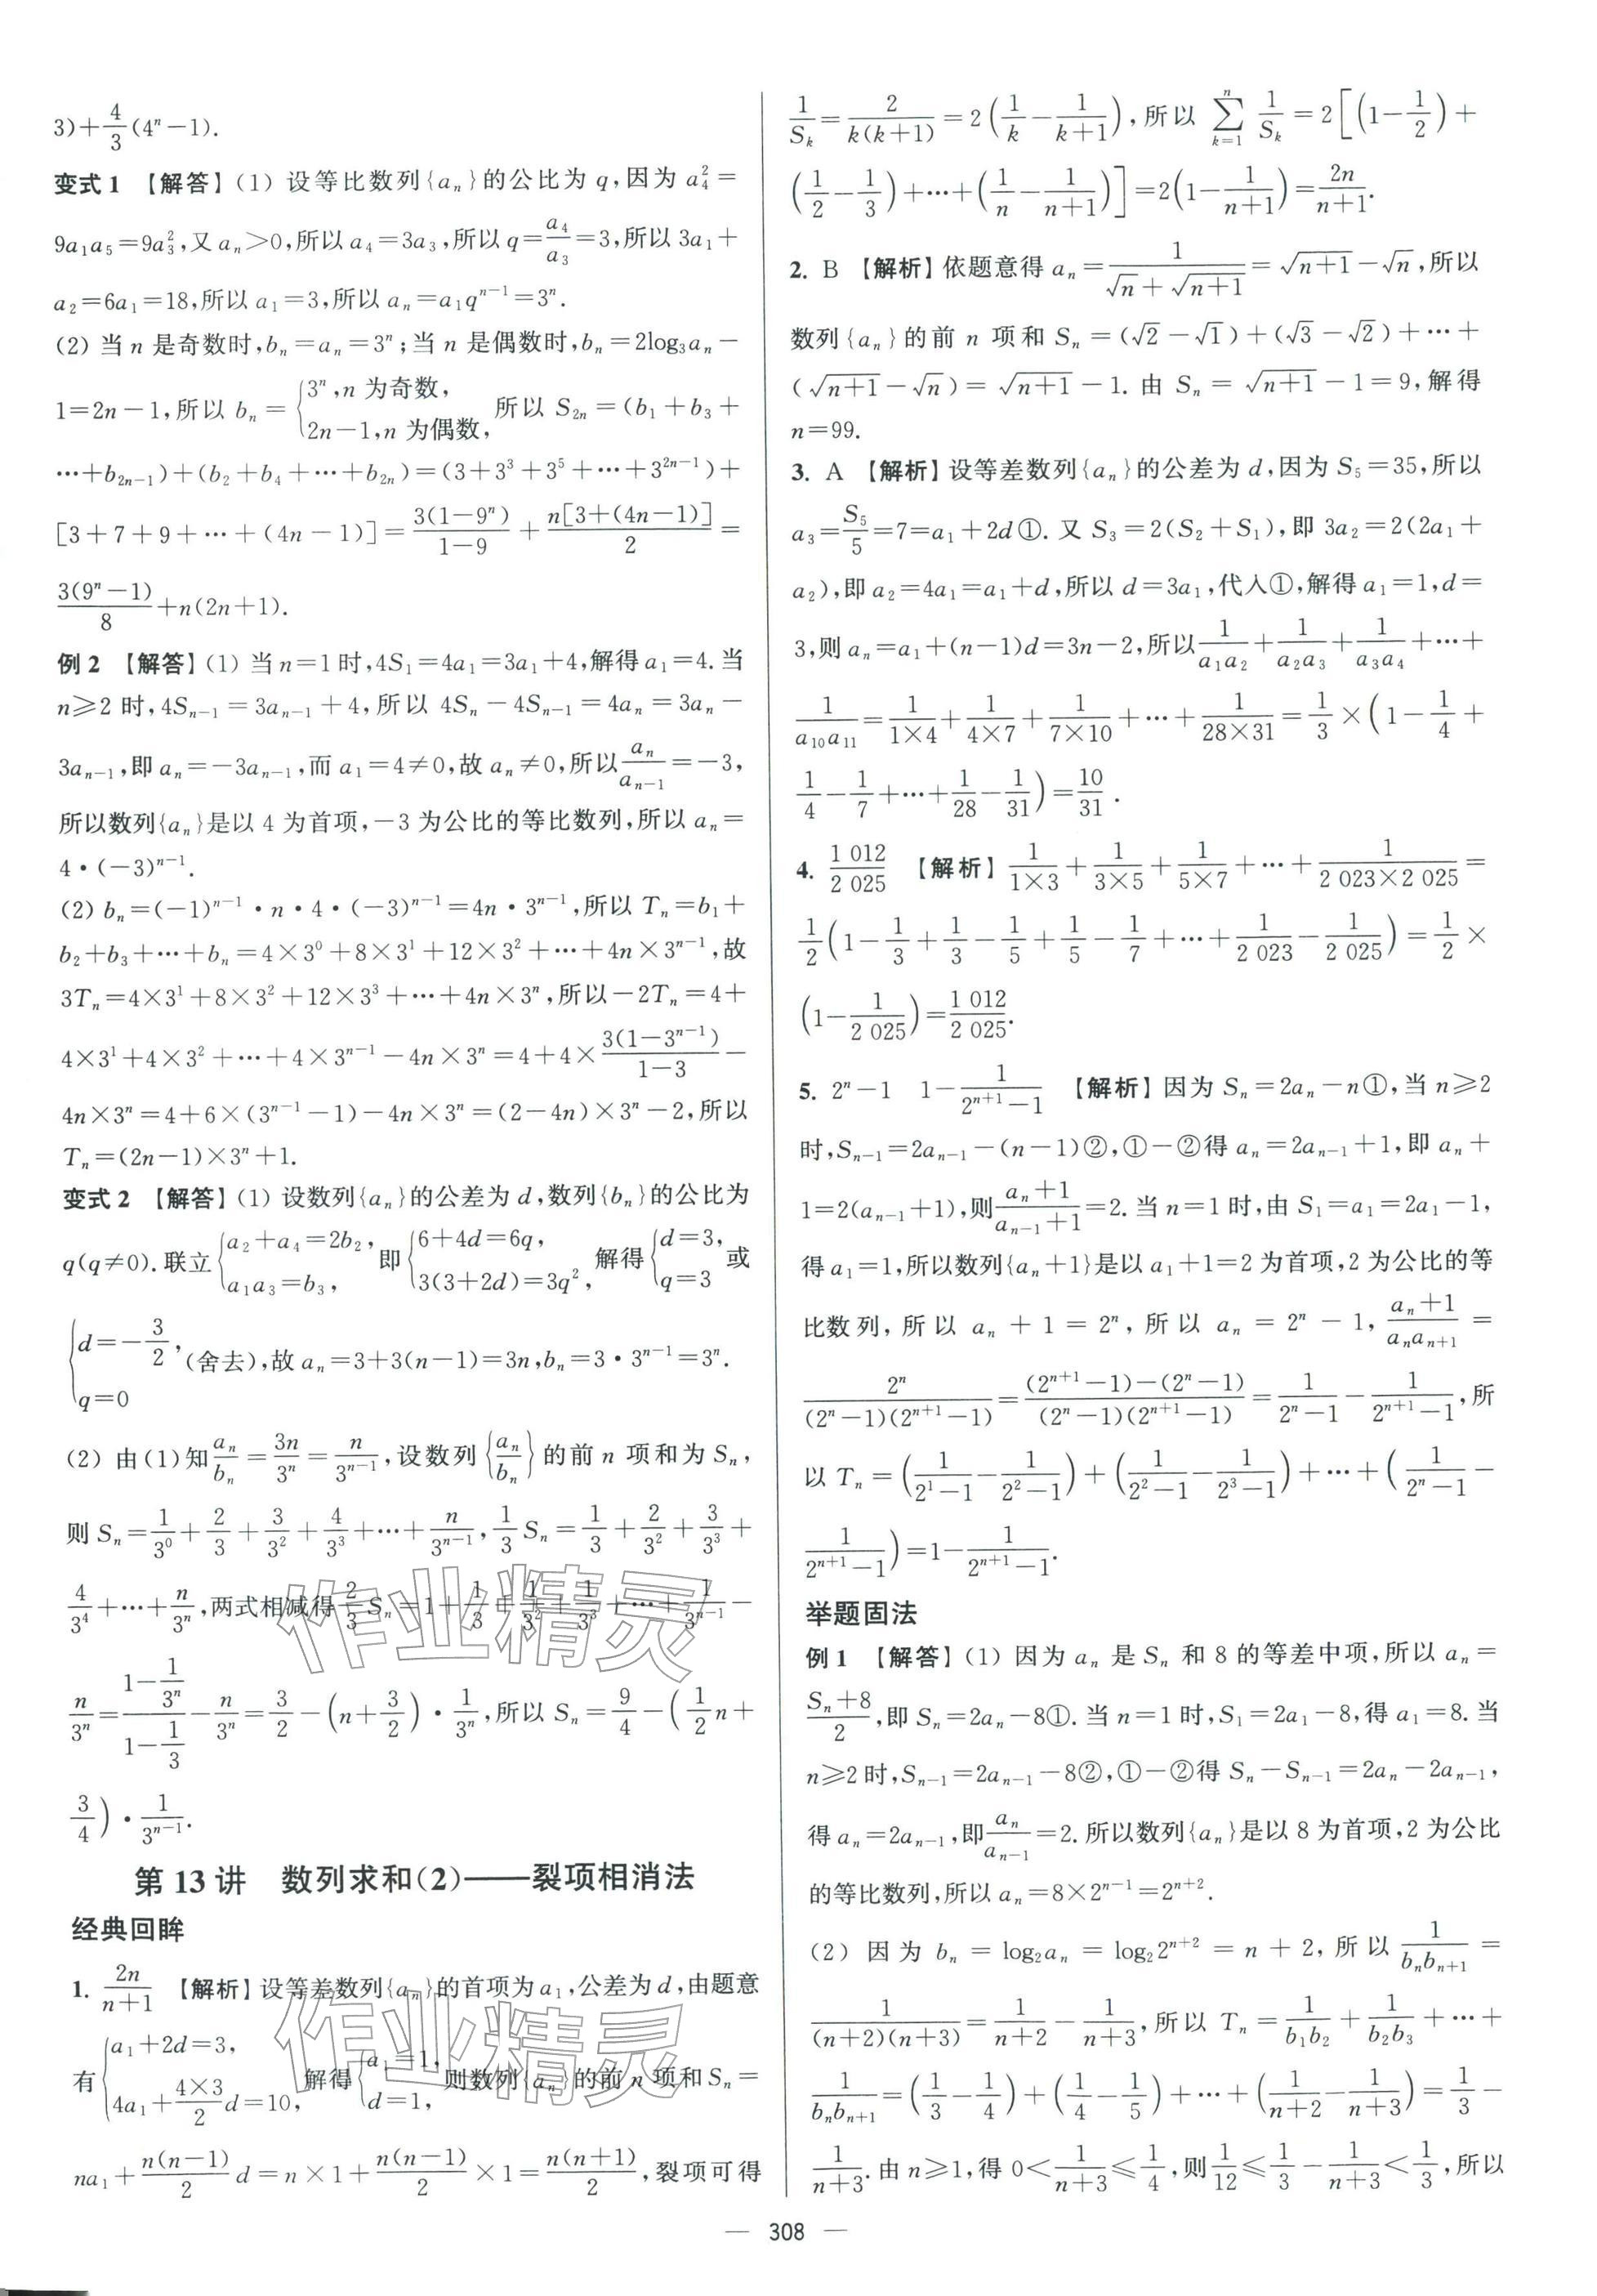 3)+\frac{4}{3}(4^n-1).
变式1 【解答】(1) 设等比数列{a_n}的公比为 q,因为 a_4^2=
9a_1a_5=9a_3^2,又 a_n>0,所以 a_4=3a_3,所以 q=\frac{a_4}{a_3}=3,所以 3a_1+
a_2=6a_1=18,所以 a_1=3,所以 a_n=a_1q^{n-1}=3^n.
(2) 当 n 是奇数时,b_n=a_n=3^n;当 n 是偶数时,b_n=2log_3a_n-
1=2n-1,所以 b_n={3^n,n 为奇数, 2n-1,n 为偶数, 所以 S_{2n}=(b_1+b_3+
…+b_{2n-1})+(b_2+b_4+…+b_{2n})=(3+3^3+3^5+…+3^{2n-1})+
[3+7+9+…+(4n-1)]=\frac{3(1-9^n)}{1-9}+\frac{n[3+(4n-1)]}{2}=
\frac{3(9^n-1)}{8}+n(2n+1).
例2 【解答】(1) 当 n=1 时,4S_1=4a_1=3a_1+4,解得 a_1=4.当
n≥2 时,4S_{n-1}=3a_{n-1}+4,所以 4S_n-4S_{n-1}=4a_n=3a_n-
3a_{n-1},即 a_n=-3a_{n-1},而 a_1=4≠0,故 a_n≠0,所以\frac{a_n}{a_{n-1}}=-3,
所以数列{a_n}是以 4 为首项,-3 为公比的等比数列,所以 a_n=
4·(-3)^{n-1}.
(2) b_n=(-1)^{n-1}·n·4·(-3)^{n-1}=4n·3^{n-1},所以 T_n=b_1+
b_2+b_3+…+b_n=4×3^0+8×3^1+12×3^2+…+4n×3^{n-1},故
3T_n=4×3^1+8×3^2+12×3^3+…+4n×3^n,所以-2T_n=4+
4×3^1+4×3^2+…+4×3^{n-1}-4n×3^n=4+4×\frac{3(1-3^{n-1})}{1-3}-
4n×3^n=4+6×(3^{n-1}-1)-4n×3^n=(2-4n)×3^n-2,所以
T_n=(2n-1)×3^n+1.
变式2 【解答】(1) 设数列{a_n}的公差为 d,数列{b_n}的公比为
q(q≠0).联立{a_2+a_4=2b_2, a_1a_3=b_3, 即{6+4d=6q, 3(3+2d)=3q^2, 解得{d=3, q=3 或
{d=-\frac{3}{2}, q=0 (舍去),故 a_n=3+3(n-1)=3n,b_n=3·3^{n-1}=3^n.
(2) 由(1)知\frac{a_n}{b_n}=\frac{3n}{3^n}=\frac{n}{3^{n-1}},设数列{\frac{a_n}{b_n}}的前 n 项和为 S_n,
则 S_n=\frac{1}{3^0}+\frac{2}{3}+\frac{3}{3^2}+\frac{4}{3^3}+…+\frac{n}{3^{n-1}},\frac{1}{3}S_n=\frac{1}{3}+\frac{2}{3^2}+\frac{3}{3^3}+
\frac{4}{3^4}+…+\frac{n}{3^n},两式相减得\frac{2}{3}S_n=1+\frac{1}{3}+\frac{1}{3^2}+\frac{1}{3^3}+…+\frac{1}{3^{n-1}}-
\frac{n}{3^n}=\frac{1-\frac{1}{3^n}}{1-\frac{1}{3}}-\frac{n}{3^n}=\frac{3}{2}-(n+\frac{3}{2})·\frac{1}{3^n},所以 S_n=\frac{9}{4}-(\frac{1}{2}n+
\frac{3}{4})·\frac{1}{3^{n-1}}.
第 13 讲 数列求和(2)——裂项相消法
经典回眸
1. \frac{2n}{n+1} 【解析】设等差数列{a_n}的首项为 a_1,公差为 d,由题意
有{a_1+2d=3, 4a_1+\frac{4×3}{2}d=10, 解得{a_1=1, d=1, 则数列{a_n}的前 n 项和 S_n=
na_1+\frac{n(n-1)}{2}d=n×1+\frac{n(n-1)}{2}×1=\frac{n(n+1)}{2},裂项可得
\frac{1}{S_k}=\frac{2}{k(k+1)}=2(\frac{1}{k}-\frac{1}{k+1}),所以 \sum_{k=1}^{n}\frac{1}{S_k}=2[(1-\frac{1}{2})+
(\frac{1}{2}-\frac{1}{3})+…+(\frac{1}{n}-\frac{1}{n+1})]=2(1-\frac{1}{n+1})=\frac{2n}{n+1}.
2. B 【解析】依题意得 a_n=\frac{1}{\sqrt{n}+\sqrt{n+1}}=\sqrt{n+1}-\sqrt{n},所以
数列{a_n}的前 n 项和 S_n=(\sqrt{2}-\sqrt{1})+(\sqrt{3}-\sqrt{2})+…+
(\sqrt{n+1}-\sqrt{n})=\sqrt{n+1}-1.由 S_n=\sqrt{n+1}-1=9,解得
n=99.
3. A 【解析】设等差数列{a_n}的公差为 d,因为 S_5=35,所以
a_3=\frac{S_5}{5}=7=a_1+2d①.又 S_3=2(S_2+S_1),即 3a_2=2(2a_1+
a_2),即 a_2=4a_1=a_1+d,所以 d=3a_1,代入①,解得 a_1=1,d=
3,则 a_n=a_1+(n-1)d=3n-2,所以\frac{1}{a_1a_2}+\frac{1}{a_2a_3}+\frac{1}{a_3a_4}+…+
\frac{1}{a_{10}a_{11}}=\frac{1}{1×4}+\frac{1}{4×7}+\frac{1}{7×10}+…+\frac{1}{28×31}=\frac{1}{3}×(1-\frac{1}{4}+
\frac{1}{4}-\frac{1}{7}+…+\frac{1}{28}-\frac{1}{31})=\frac{10}{31}.
4. \frac{1 012}{2 025} 【解析】\frac{1}{1×3}+\frac{1}{3×5}+\frac{1}{5×7}+…+\frac{1}{2 023×2 025}=
\frac{1}{2}(1-\frac{1}{3}+\frac{1}{3}-\frac{1}{5}+\frac{1}{5}-\frac{1}{7}+…+\frac{1}{2 023}-\frac{1}{2 025})=\frac{1}{2}×
(1-\frac{1}{2 025})=\frac{1 012}{2 025}.
5. 2^n-1 1-\frac{1}{2^{n+1}-1} 【解析】因为 S_n=2a_n-n①,当 n≥2
时,S_{n-1}=2a_{n-1}-(n-1)②,①-②得 a_n=2a_{n-1}+1,即 a_n+
1=2(a_{n-1}+1),则\frac{a_n+1}{a_{n-1}+1}=2.当 n=1 时,由 S_1=a_1=2a_1-1,
得 a_1=1,所以数列{a_n+1}是以 a_1+1=2 为首项,2 为公比的等
比数列,所以 a_n+1=2^n,所以 a_n=2^n-1,\frac{a_n+1}{a_na_{n+1}}=
\frac{2^n}{(2^n-1)(2^{n+1}-1)}=\frac{(2^{n+1}-1)-(2^n-1)}{(2^n-1)(2^{n+1}-1)}=\frac{1}{2^n-1}-\frac{1}{2^{n+1}-1},所
以 T_n=(\frac{1}{2^1-1}-\frac{1}{2^2-1})+(\frac{1}{2^2-1}-\frac{1}{2^3-1})+…+(\frac{1}{2^n-1}-
\frac{1}{2^{n+1}-1})=1-\frac{1}{2^{n+1}-1}.
举题固法
例1 【解答】(1) 因为 a_n 是 S_n 和 8 的等差中项,所以 a_n=
\frac{S_n+8}{2},即 S_n=2a_n-8①.当 n=1 时,S_1=2a_1-8,得 a_1=8.当
n≥2 时,S_{n-1}=2a_{n-1}-8②,①-②得 S_n-S_{n-1}=2a_n-2a_{n-1},
得 a_n=2a_{n-1},即\frac{a_n}{a_{n-1}}=2.所以数列{a_n}是以 8 为首项,2 为公比
的等比数列,所以 a_n=8×2^{n-1}=2^{n+2}.
(2) 因为 b_n=log_2a_n=log_22^{n+2}=n+2,所以\frac{1}{b_nb_{n+1}}=
\frac{1}{(n+2)(n+3)}=\frac{1}{n+2}-\frac{1}{n+3},所以 T_n=\frac{1}{b_1b_2}+\frac{1}{b_2b_3}+…+
\frac{1}{b_nb_{n+1}}=(\frac{1}{3}-\frac{1}{4})+(\frac{1}{4}-\frac{1}{5})+…+(\frac{1}{n+2}-\frac{1}{n+3})=\frac{1}{3}-
\frac{1}{n+3}.由 n≥1,得 0<\frac{1}{n+3}≤\frac{1}{4},则\frac{1}{12}≤\frac{1}{3}-\frac{1}{n+3}<\frac{1}{3},所以
— 308 —
作业精灵
作业精灵